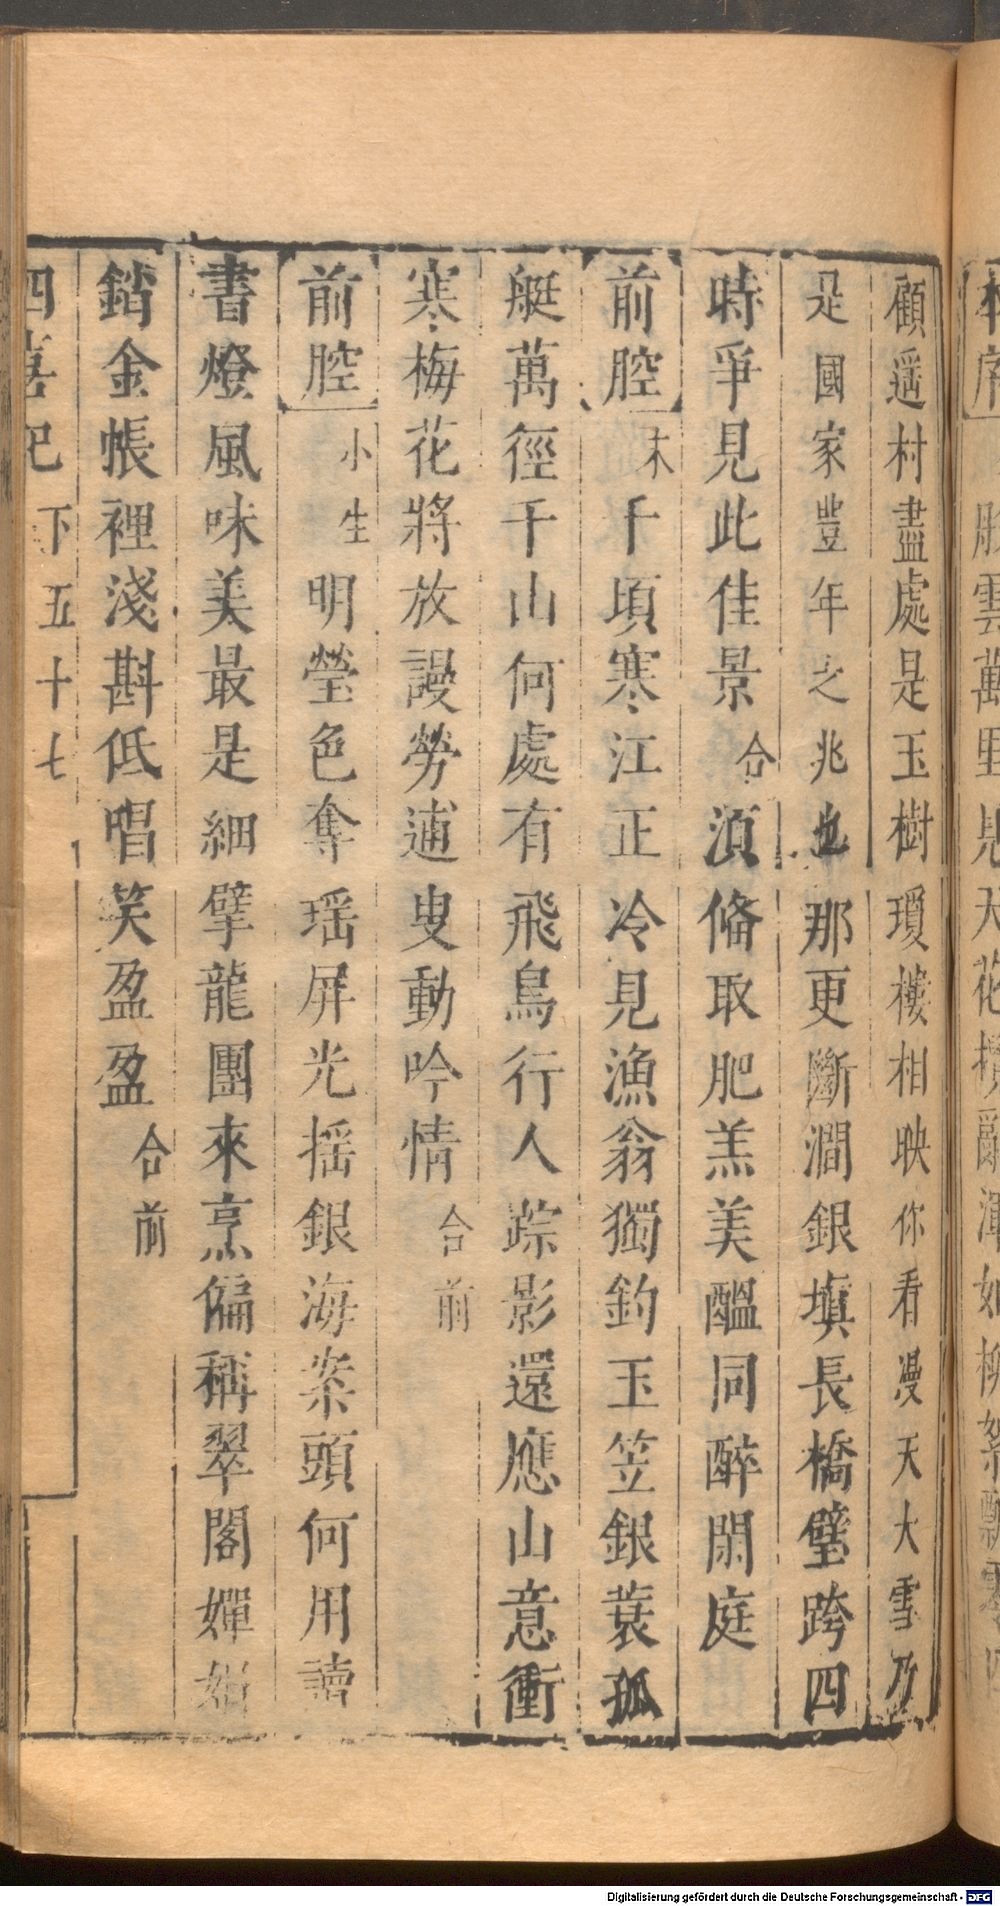 顧遥村盡處是玉樹瓊樓相映你看漫天大雪乃
是國家豐年之兆也那更斷澗銀塡長橋璧跨四
時爭見此佳景合須偹取肥羔美醞同醉閒庭
前腔末千頃寒江正冷見漁翁獨釣玉笠銀蓑孤
艇萬徑千山何處有飛鳥行人踪影還應山意衝
寒梅花將放謾勞逋叟動吟情合前
前腔小生明瑩色奪瑶屏光摇銀海案頭何用讀
書燈風味美最是細擘龍團來烹偏稱翠閣嬋娟
銷金帳裡淺斟低唱笑盈盈合前
四喜記下五十七
Digitalisierung gefördert durch die Deutsche Forschungsgemeinschaft - DFG